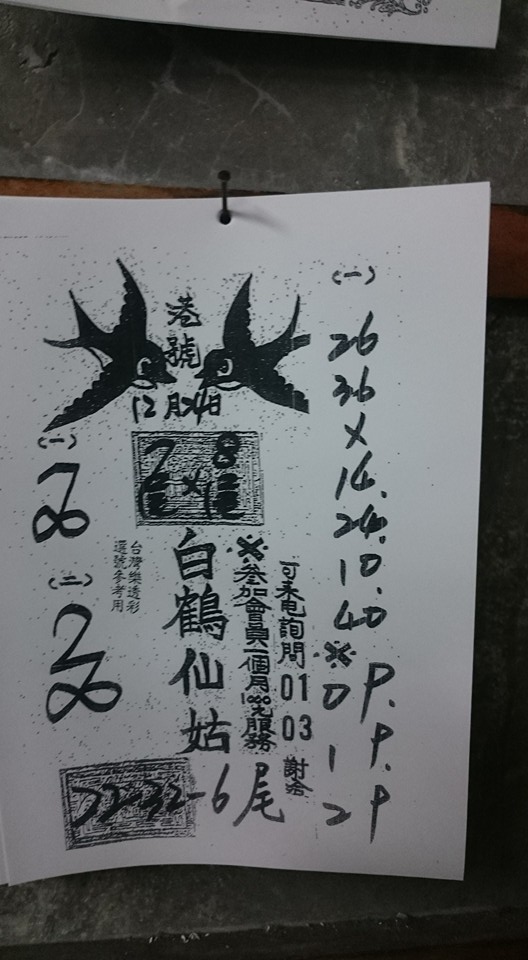 港
號
12月24日
(一)
7
8
(二)
2
8
7 8
X
台灣樂透彩
選號參考用
白鶴仙姑
※參加會員一個月1000元服務
可來電詢問0103謝洽
22-32-6尾
(一)
26
36
X
14.
24.
10.
40
※
0 P.
1 P.
2 P